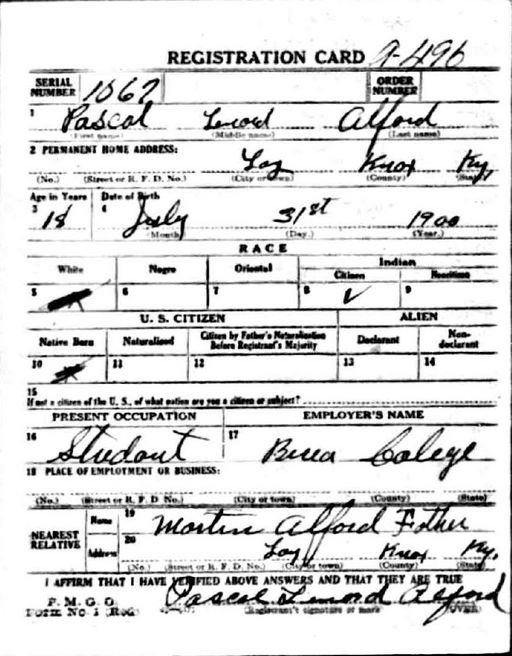 REGISTRATION CARD A-496
SERIAL NUMBER 1067 ORDER NUMBER
1 Pascal Lenord Alford
(First name) (Middle name) (Last name)
2 PERMANENT HOME ADDRESS:
Loy Knox Ky,
(No.) (Street or R. F. D. No.) (City or town) (County) (State)
Age in Years Date of Birth
3 18 4 July 31st 1900
(Month) (Day.) (Year.)
RACE
White Negro Oriental Indian
Citizen Noncitizen
5 6 7 8 ✓ 9
U. S. CITIZEN ALIEN
Native Born Naturalized Citizen by Father's Naturalization Before Registrant's Majority Declarant Non-declarant
10 11 12 13 14
15
If not a citizen of the U. S., of what nation are you a citizen or subject?
PRESENT OCCUPATION EMPLOYER'S NAME
16 Student 17 Berea Colege
18 PLACE OF EMPLOYMENT OR BUSINESS:
(No.) (Street or R. F. D. No.) (City or town) (County) (State)
NEAREST RELATIVE Name 19 Martin Alford Father
Address 20 Loy Knox Ky.
(No.) (Street or R. F. D. No.) (City or town) (County) (State)
I AFFIRM THAT I HAVE VERIFIED ABOVE ANSWERS AND THAT THEY ARE TRUE
P. M. G. O.
Form No. 1 (Red) Pascal Lenord Alford
(Registrant's signature or mark) (OVER)